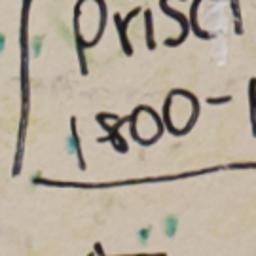 prisc
1800-